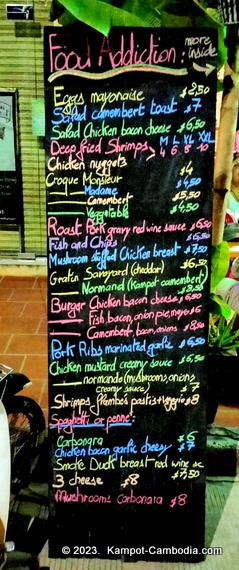 Food Addiction: more inside
Eggs mayonaise $2,50
Salad camembert toast $7
Salad Chicken bacon cheese $6,50
M L XL XXL
Deep fried Shrimps > 4 6 8 10
Chicken nuggets $4
Croque Monsieur
Madame $4,50
Camembert $5,50
Vegetable $4,50
Roast Pork gravy red wine sauce $6,50
Fish and Chips $6,50
Mushroom stuffed Chicken breast $7,50
Gratin Savoyard (cheddar) $6,50
Normand (Kampot camembert)
Burger Chicken bacon cheese $6,50
Fish, bacon, onion pie, mayo $6
Camembert, bacon, onions $8,50
Pork Ribs marinated garlic $6,50
Chicken mustard creamy sauce $6,50
normande (mushrooms, onions
creamy sauce) $7
Shrimps flambés pastis + Veggie $8
Spaghetti or penne:
Carbonara $6
Chicken bacon garlic cheesy $7
Smoke Duck breast red wine sc $7,50
3 cheese $8
Mushrooms Carbonara $8
© 2023. Kampot-Cambodia.com